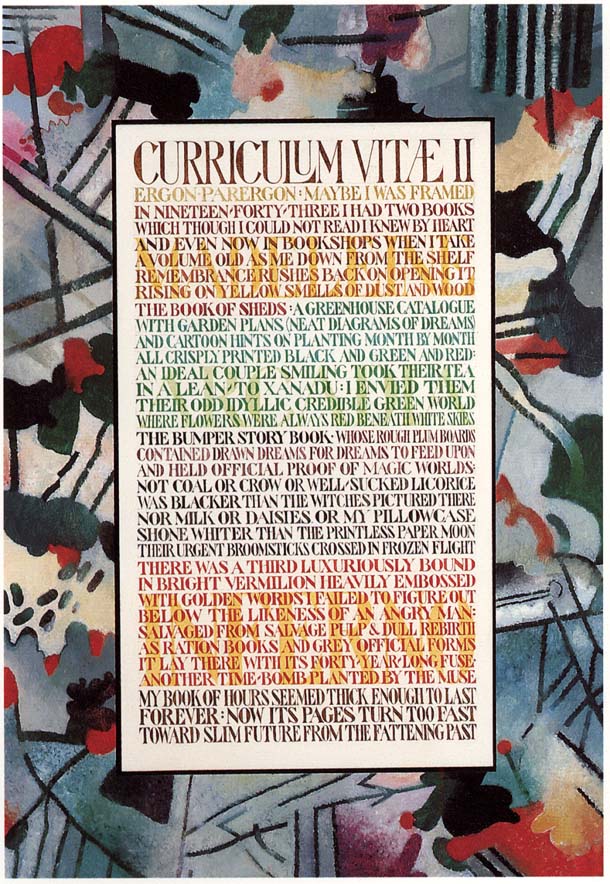 CURRICULUM VITÆ II
ERGON·PARERGON: MAYBE I WAS FRAMED
IN NINETEEN·FORTY·THREE I HAD TWO BOOKS
WHICH THOUGH I COULD NOT READ I KNEW BY HEART
AND EVEN NOW IN BOOKSHOPS WHEN I TAKE
A VOLUME OLD AS ME DOWN FROM THE SHELF
REMEMBRANCE RUSHES BACK ON OPENING IT
RISING ON YELLOW SMELLS OF DUST AND WOOD
THE BOOK OF SHEDS: A GREENHOUSE CATALOGUE
WITH GARDEN PLANS (NEAT DIAGRAMS OF DREAMS)
AND CARTOON HINTS ON PLANTING MONTH BY MONTH
ALL CRISPLY PRINTED BLACK AND GREEN AND RED:
AN IDEAL COUPLE SMILING TOOK THEIR TEA
IN A LEAN-TO XANADU: I ENVIED THEM
THEIR ODD IDYLLIC CREDIBLE GREEN WORLD
WHERE FLOWERS WERE ALWAYS RED BENEATH WHITE SKIES
THE BUMPER STORY BOOK· WHOSE ROUGH PLUM BOARDS
CONTAINED DRAWN DREAMS FOR DREAMS TO FEED UPON
AND HELD OFFICIAL PROOF OF MAGIC WORLDS·
NOT COAL OR CROW OR WELL-SUCKED LICORICE
WAS BLACKER THAN THE WITCHES PICTURED THERE
NOR MILK OR DAISIES OR MY PILLOWCASE
SHONE WHITER THAN THE PRINTLESS PAPER MOON
THEIR URGENT BROOMSTICKS CROSSED IN FROZEN FLIGHT
THERE WAS A THIRD LUXURIOUSLY BOUND
IN BRIGHT VERMILION HEAVILY EMBOSSED
WITH GOLDEN WORDS I FAILED TO FIGURE OUT
BELOW THE LIKENESS OF AN ANGRY MAN:
SALVAGED FROM SALVAGE PULP & DULL REBIRTH
AS RATION BOOKS AND GREY OFFICIAL FORMS
IT LAY THERE WITH ITS FORTY-YEAR-LONG FUSE:
ANOTHER TIME-BOMB PLANTED BY THE MUSE
MY BOOK OF HOURS SEEMED THICK ENOUGH TO LAST
FOREVER: NOW ITS PAGES TURN TOO FAST
TOWARD SLIM FUTURE FROM THE FATTENING PAST